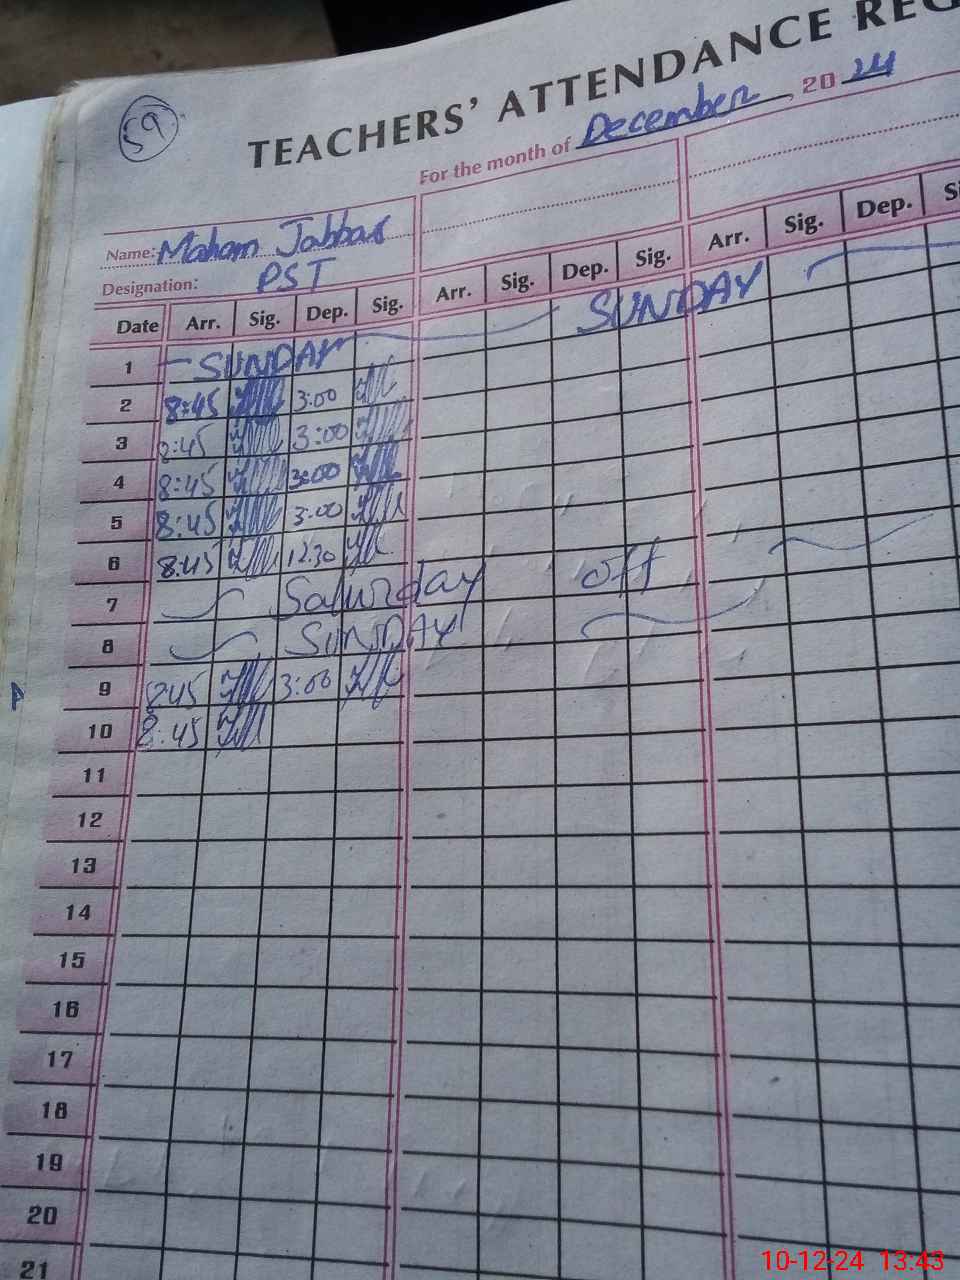 59
TEACHERS' ATTENDANCE REG
For the month of December, 2024
Name: Maham Jabbar
Designation: PST
Date Arr. Sig. Dep. Sig. Arr. Sig. Dep. Sig. Arr. Sig. Dep. Si
1 SUNDAY SUNDAY
2 8:45 3:00
3 8:45 3:00
4 8:45 3:00
5 8:45 3:00
6 8:45 12.30
7 Saturday off
8 SUNDAY
9 8:45 3:00
10 8:45
11
12
13
14
15
16
17
18
19
20
21
10-12-24 13:43